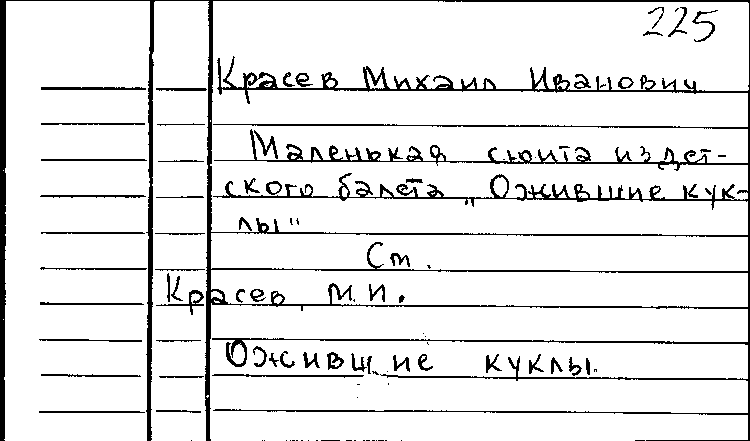 225
Красев Михаил Иванович
Маленькая сюита из дет-
ского балета „Ожившие кук-
лы"
См.
Красев, М.И.
Ожившие куклы.